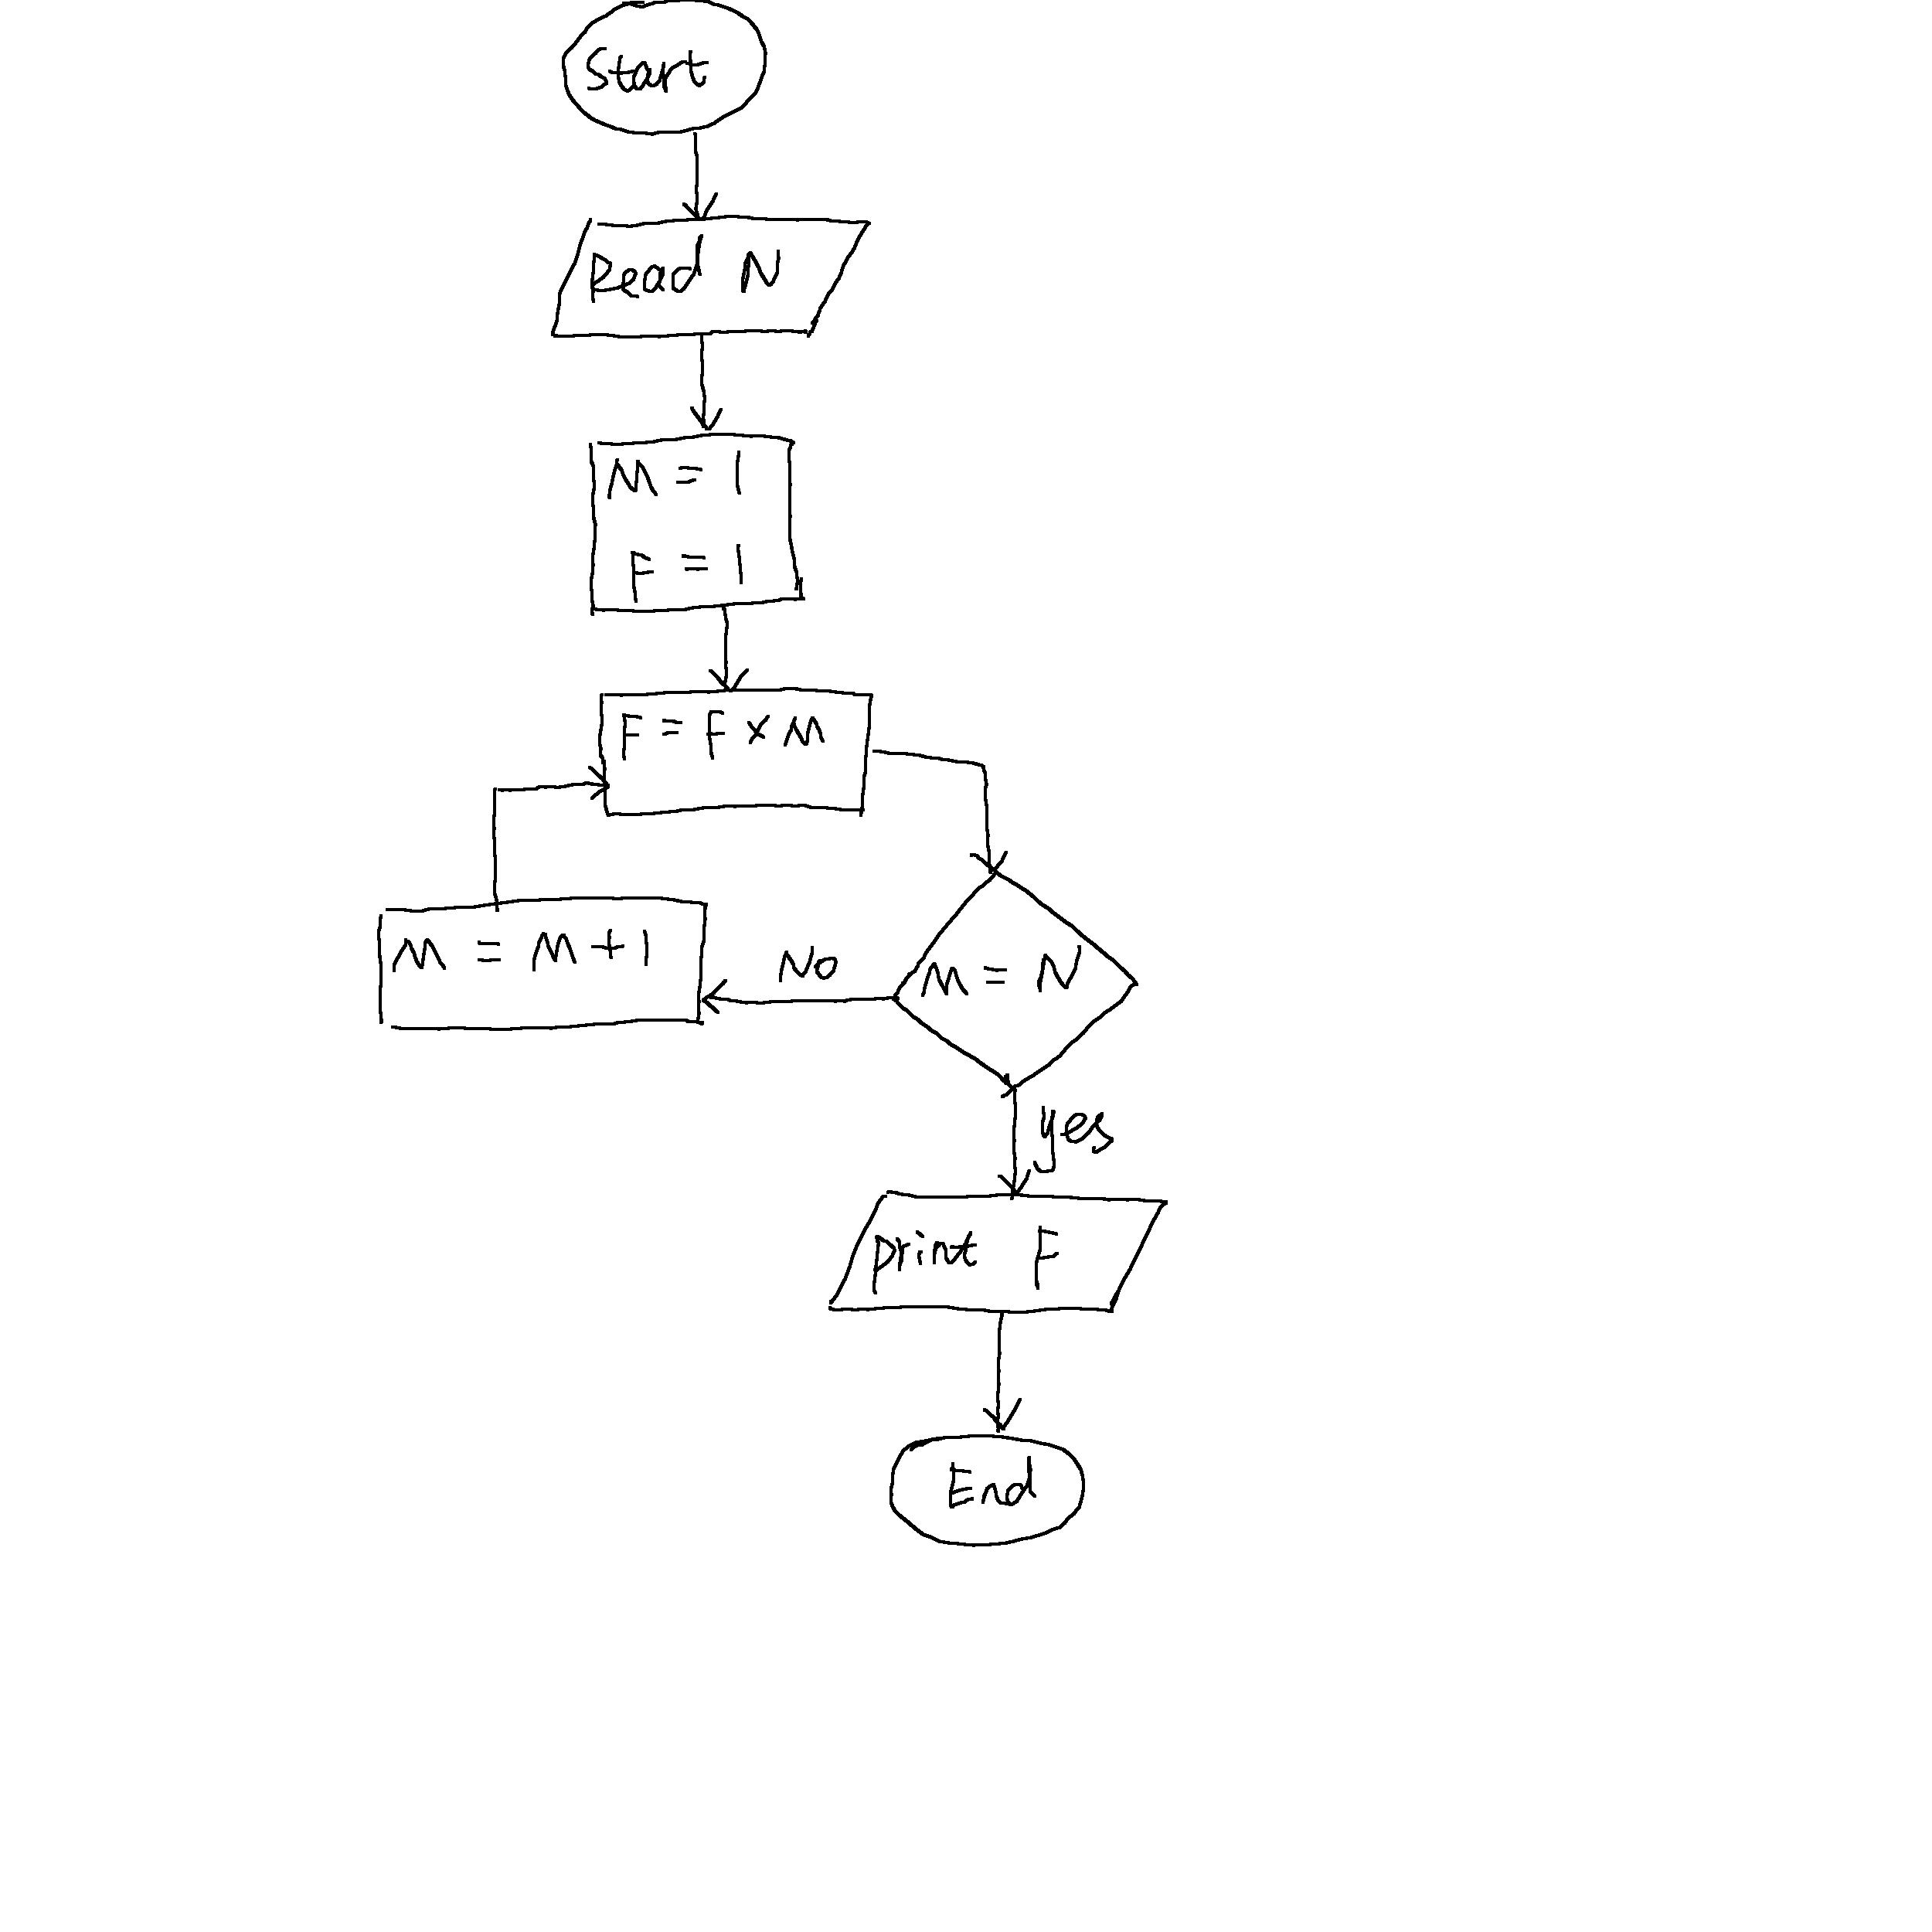 Start
Read N
M = 1
F = 1
F = F x M
M = M + 1
No
M = N
yes
print F
End